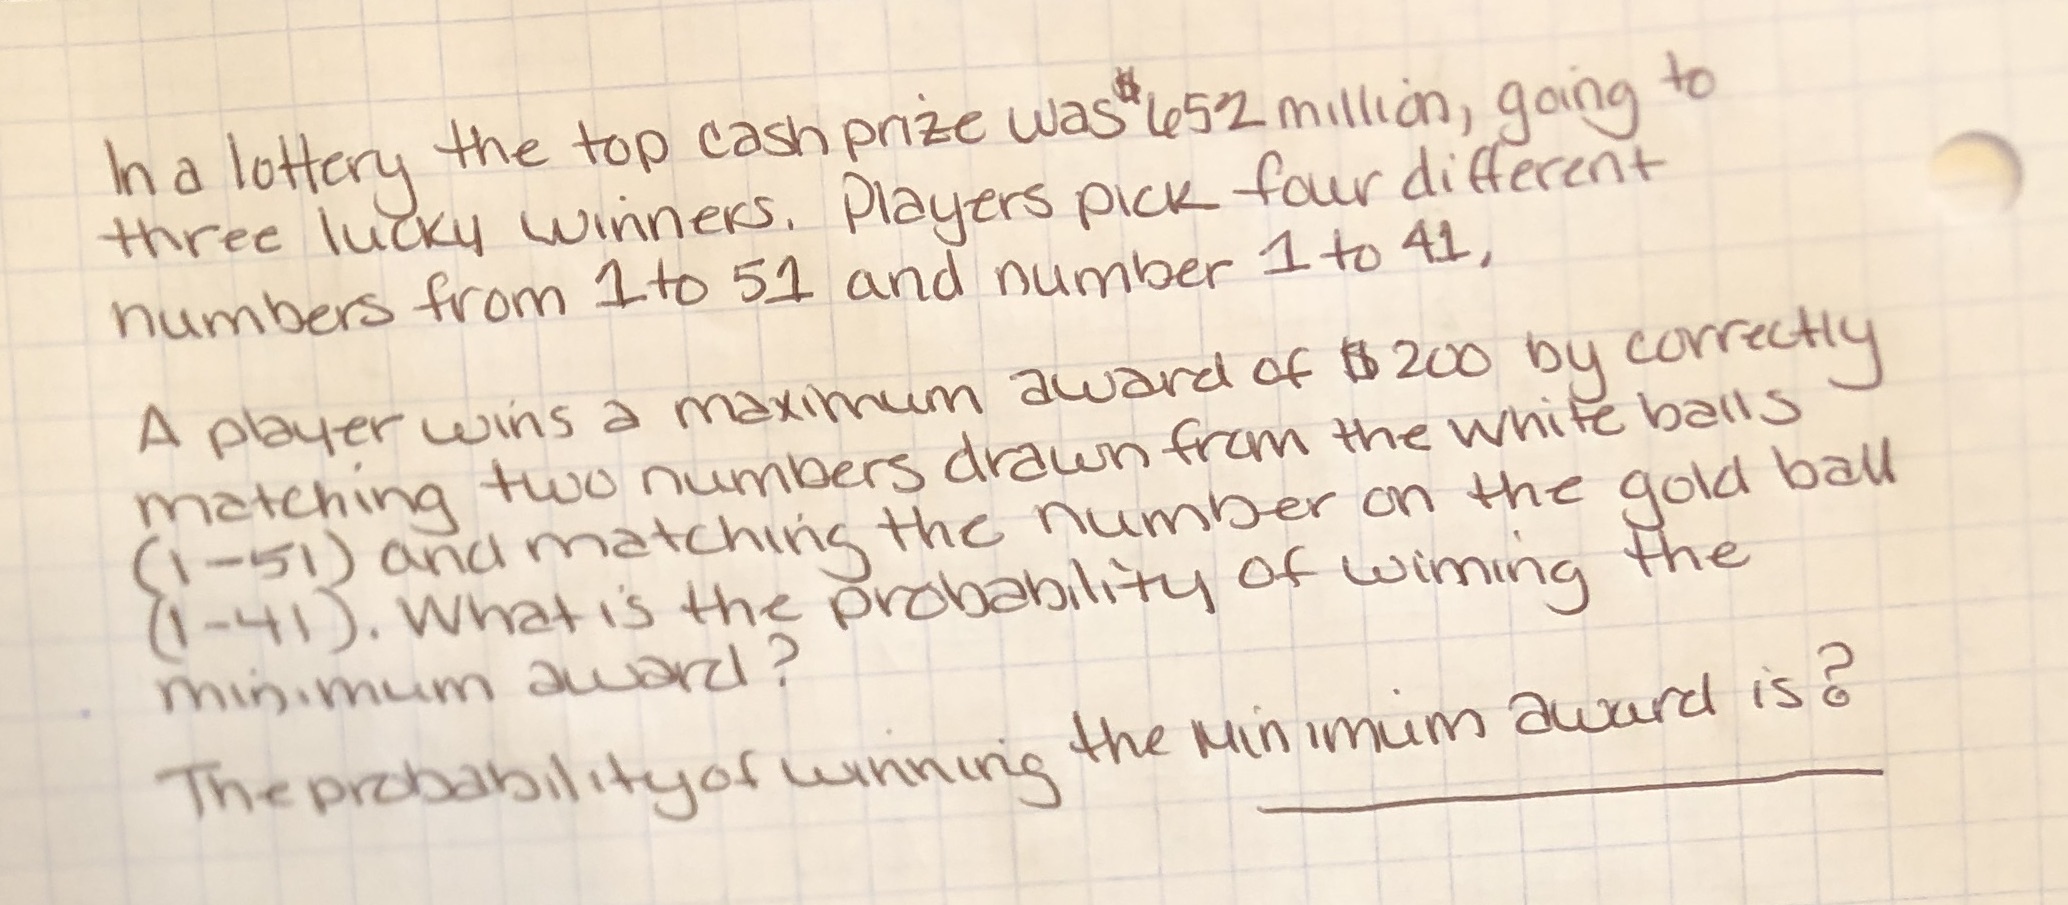 In a lottery the top cash prize was $652 million, going to
three lucky winners. Players pick four different
numbers from 1 to 51 and number 1 to 41.
A player wins a maximum award of $200 by correctly
matching two numbers drawn from the white balls
(1-51) and matching the number on the gold ball
(1-41). What is the probability of wiming the
minimum award?
The probability of winning the Minimum award is?